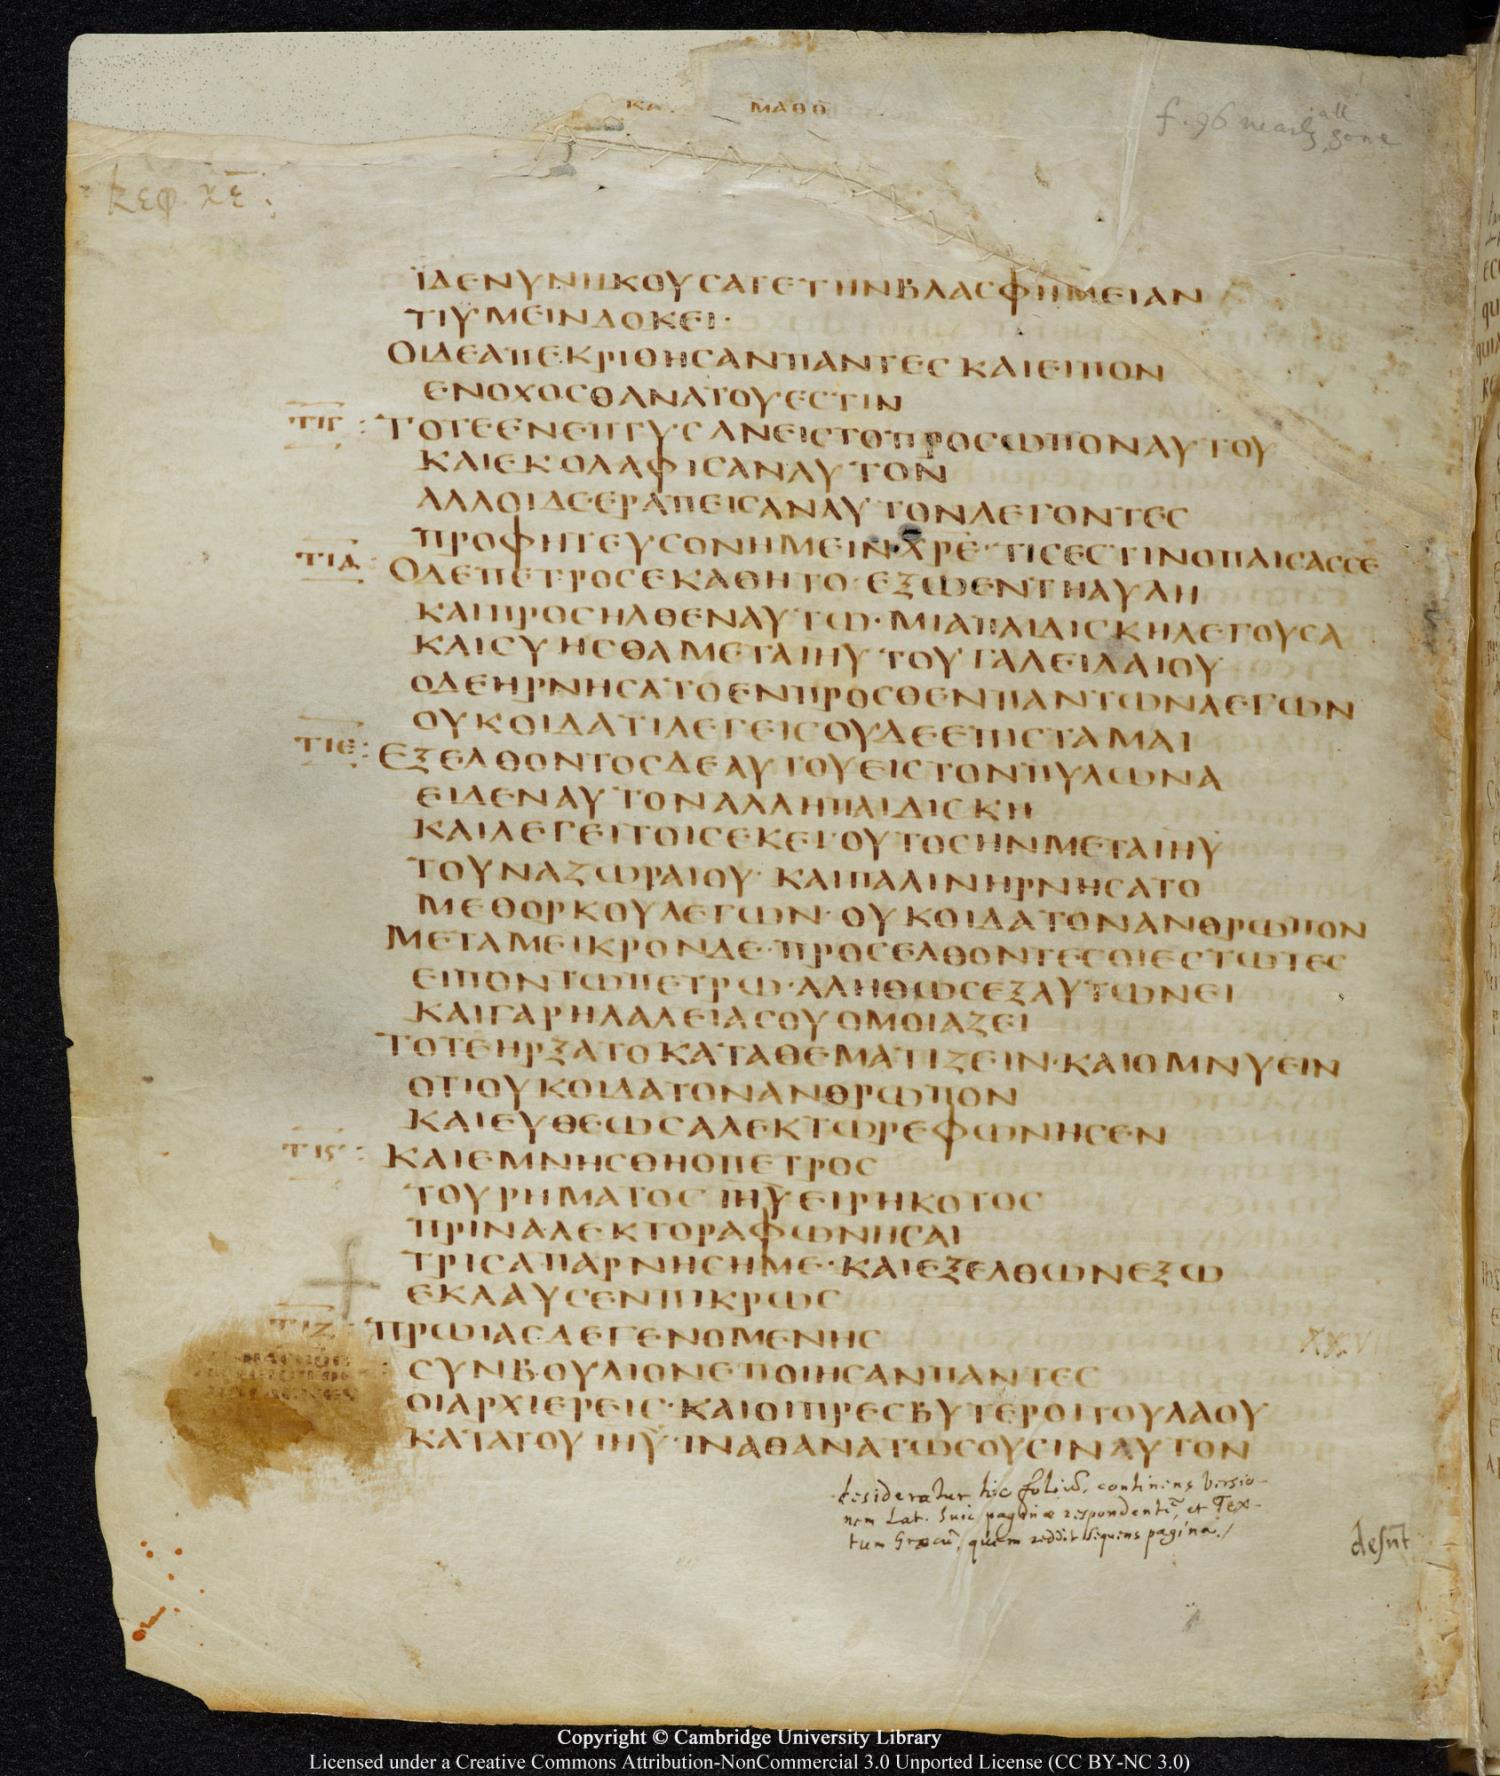 ΚΑ ΜΑΘΘ
f. 96 nearly all gone
κεφ. χε:
ΪΔΕΝΥΝΗΚΟΥСΑΤΕΤΗΝΒΛΑСΦΗΜΕΙΑΝ
ΤΙΥΜΕΙΝΔΟΚΕΙ·
ΟΙΔΕΑΠΕΚΡΙΘΗСΑΝΠΑΝΤΕС ΚΑΙΕΙΠΟΝ
ΕΝΟΧΟСΘΑΝΑΤΟΥΕСΤΙΝ
ΤΙΓ : ΤΟΤΕΕΝΕΠΤΥСΑΝΕΙСΤΟΠΡΟСΩΠΟΝΑΥΤΟΥ
ΚΑΙΕΚΟΛΑΦΙСΑΝΑΥΤΟΝ
ΑΛΛΟΙΔΕΕΡΑΠΕΙСΑΝΑΥΤΟΝΛΕΓΟΝΤΕС
ΠΡΟΦΗΤΕΥСΟΝΗΜΕΙΝ·ΧΡΕ·ΤΙСΕСΤΙΝΟΠΑΙСΑССΕ
ΤΙΔ : ΟΔΕΠΕΤΡΟСΕΚΑΘΗΤΟ·ΕΞΩΕΝΤΗΑΥΛΗ
ΚΑΙΠΡΟСΗΛΘΕΝΑΥΤΩ·ΜΙΑΠΑΙΔΙСΚΗΛΕΓΟΥСΑ
ΚΑΙСΥΗСΘΑΜΕΤΑΙΗΥ ΤΟΥΓΑΛΕΙΛΑΙΟΥ
ΟΔΕΗΡΝΗСΑΤΟΕΝΠΡΟСΘΕΝΠΑΝΤΩΝΛΕΓΩΝ
ΟΥΚΟΙΔΑΤΙΛΕΓΕΙСΟΥΔΕΕΠΙСΤΑΜΑΙ
ΤΙΕ : ΕΞΕΛΘΟΝΤΟСΔΕΑΥΤΟΥΕΙСΤΟΝΠΥΛΩΝΑ
ΕΙΔΕΝΑΥΤΟΝΑΛΛΗΠΑΙΔΙСΚΗ
ΚΑΙΛΕΓΕΙΤΟΙСΕΚΕΙ·ΟΥΤΟСΗΝΜΕΤΑΙΗΥ
ΤΟΥΝΑΖΩΡΑΙΟΥ· ΚΑΙΠΑΛΙΝΗΡΝΗСΑΤΟ
ΜΕΘΟΡΚΟΥΛΕΓΩΝ·ΟΥΚΟΙΔΑΤΟΝΑΝΘΡΩΠΟΝ
ΜΕΤΑΜΕΙΚΡΟΝΔΕ·ΠΡΟСΕΛΘΟΝΤΕСΟΙΕСΤΩΤΕС
ΕΙΠΟΝΤΩΠΕΤΡΩ·ΑΛΗΘΩСΕΞΑΥΤΩΝΕΙ
ΚΑΙΓΑΡΗΛΑΛΕΙΑСΟΥΟΜΟΙΑΖΕΙ
ΤΟΤΕΗΡΞΑΤΟΚΑΤΑΘΕΜΑΤΙΖΕΙΝ·ΚΑΙΟΜΝΥΕΙΝ
ΟΤΙΟΥΚΟΙΔΑΤΟΝΑΝΘΡΩΠΟΝ
ΚΑΙΕΥΘΕΩСΑΛΕΚΤΩΡΕΦΩΝΗСΕΝ
ΤΙϚ : ΚΑΙΕΜΝΗСΘΗΟΠΕΤΡΟС
ΤΟΥΡΗΜΑΤΟС ΙΗΥ ΕΙΡΗΚΟΤΟС
ΠΡΙΝΑΛΕΚΤΟΡΑΦΩΝΗСΑΙ
ΤΡΙСΑΠΑΡΝΗСΗΜΕ·ΚΑΙΕΞΕΛΘΩΝΕΞΩ
ΕΚΛΑΥСΕΝΠΙΚΡΩС
ΤΙΖ : ΠΡΩΙΑСΔΕΓΕΝΟΜΕΝΗС
СΥΝΒΟΥΛΙΟΝΕΠΟΙΗСΑΝΠΑΝΤΕС
ΟΙΑΡΧΙΕΡΕΙС·ΚΑΙΟΙΠΡΕСΒΥΤΕΡΟΙΤΟΥΛΑΟΥ
ΚΑΤΑΤΟΥΙΗΥ·ΙΝΑΘΑΝΑΤΩСΟΥСΙΝΑΥΤΟΝ
desideratur hic foliū, continens versio-
nem Lat. huic paginæ respondentē, et Tex-
tum Græcū, quem reddit sequens pagina./
desūt
Copyright © Cambridge University Library
Licensed under a Creative Commons Attribution-NonCommercial 3.0 Unported License (CC BY-NC 3.0)